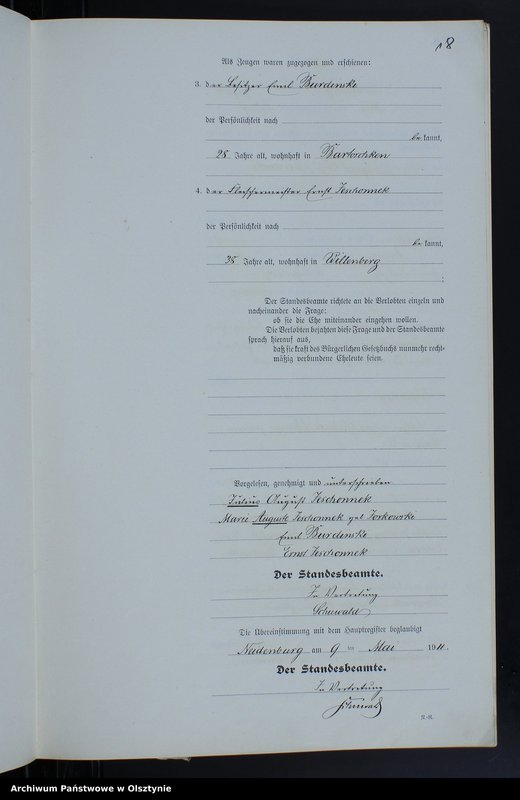 18
Als Zeugen waren zugezogen und erschienen:
3. der Besitzer Emil Burdenski
der Persönlichkeit nach
be kannt,
28 Jahre alt, wohnhaft in Bartoschken
4. der Fleischermeister Ernst Jeschonnek
der Persönlichkeit nach
be kannt,
38 Jahre alt, wohnhaft in Willenberg
;
Der Standesbeamte richtete an die Verlobten einzeln und
nacheinander die Frage:
ob sie die Ehe miteinander eingehen wollen.
Die Verlobten bejahten diese Frage und der Standesbeamte
sprach hierauf aus,
daß sie kraft des Bürgerlichen Gesetzbuchs nunmehr recht-
mäßig verbundene Eheleute seien.
Vorgelesen, genehmigt und unterschrieben
Julius August Jeschonnek
Marie Auguste Jeschonnek geb Jorkowski
Emil Burdenski
Ernst Jeschonnek
Der Standesbeamte.
In Vertretung
Schuwald
Die Übereinstimmung mit dem Hauptregister beglaubigt
Neidenburg am 9 ten Mai 1911.
Der Standesbeamte.
In Vertretung
Schuwald
Archiwum Państwowe w Olsztynie